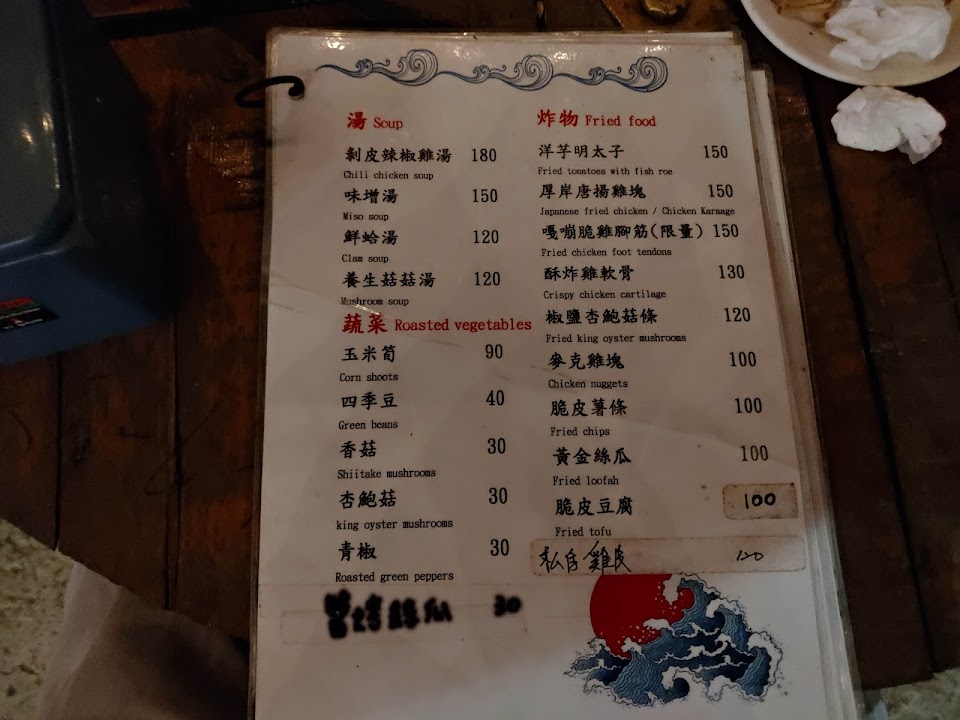 湯 Soup
剝皮辣椒雞湯 180
Chili chicken soup
味增湯 150
Miso soup
鮮蛤湯 120
Clam soup
養生菇菇湯 120
Mushroom soup
蔬菜 Roasted vegetables
玉米筍 90
Corn shoots
四季豆 40
Green beans
香菇 30
Shiitake mushrooms
杏鮑菇 30
king oyster mushrooms
青椒 30
Roasted green peppers
絲瓜 30
炸物 Fried food
洋芋明太子 150
Fried tomatoes with fish roe
厚岸唐揚雞塊 150
Japanese fried chicken / Chicken Karaage
嘎嘣脆雞腳筋(限量) 150
Fried chicken foot tendons
酥炸雞軟骨 130
Crispy chicken cartilage
椒鹽杏鮑菇條 120
Fried king oyster mushrooms
麥克雞塊 100
Chicken nuggets
脆皮薯條 100
Fried chips
黃金絲瓜 100
Fried loofah
脆皮豆腐 100
Fried tofu
雞皮 120